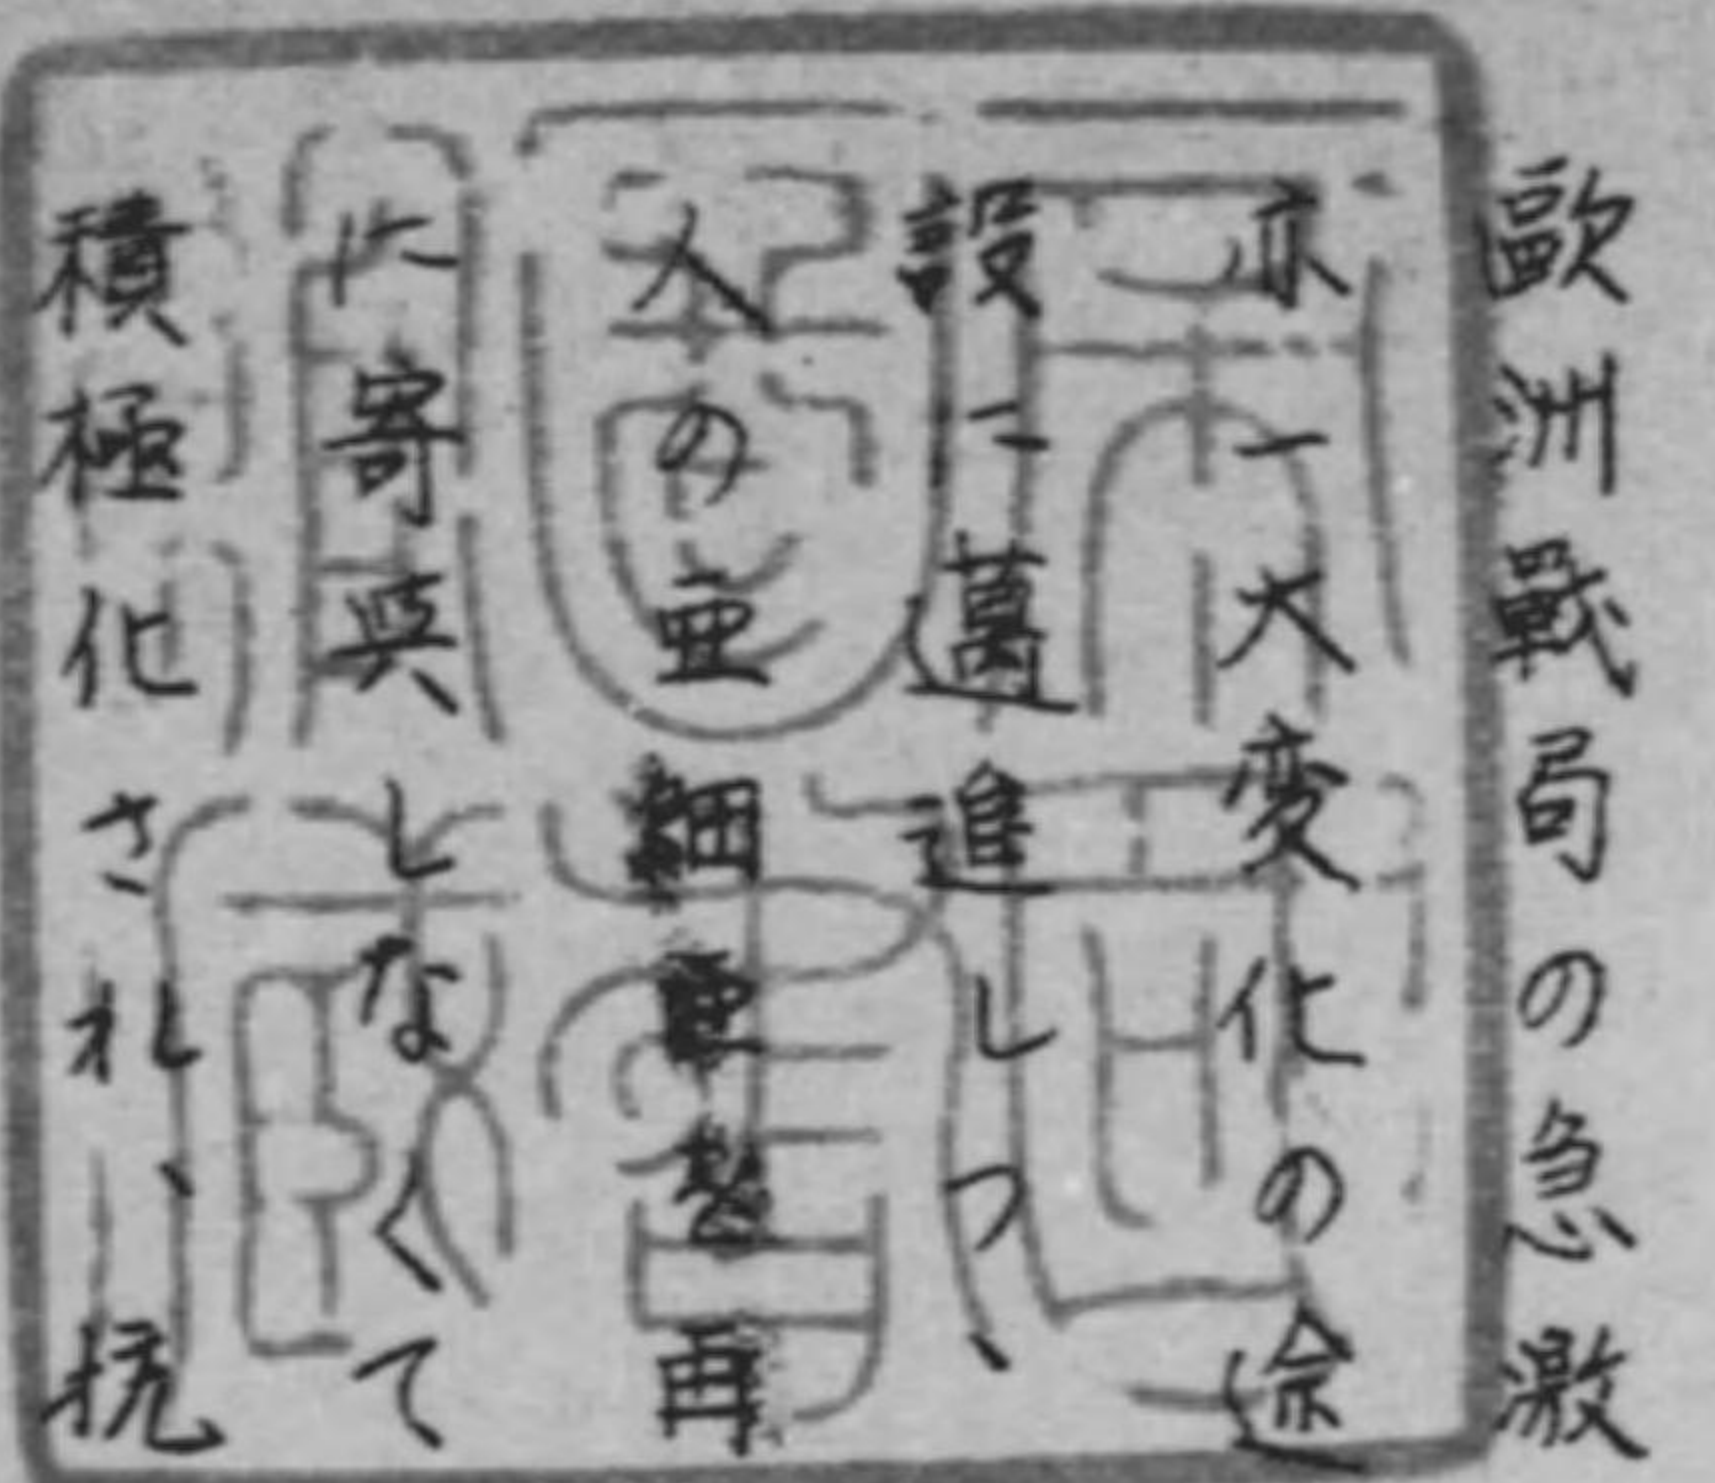 歐洲戰局の急激
亦一大変化の途
設に驀進しつゝ
人の亜細亜を再
に寄與しなくて
積極化され、抗